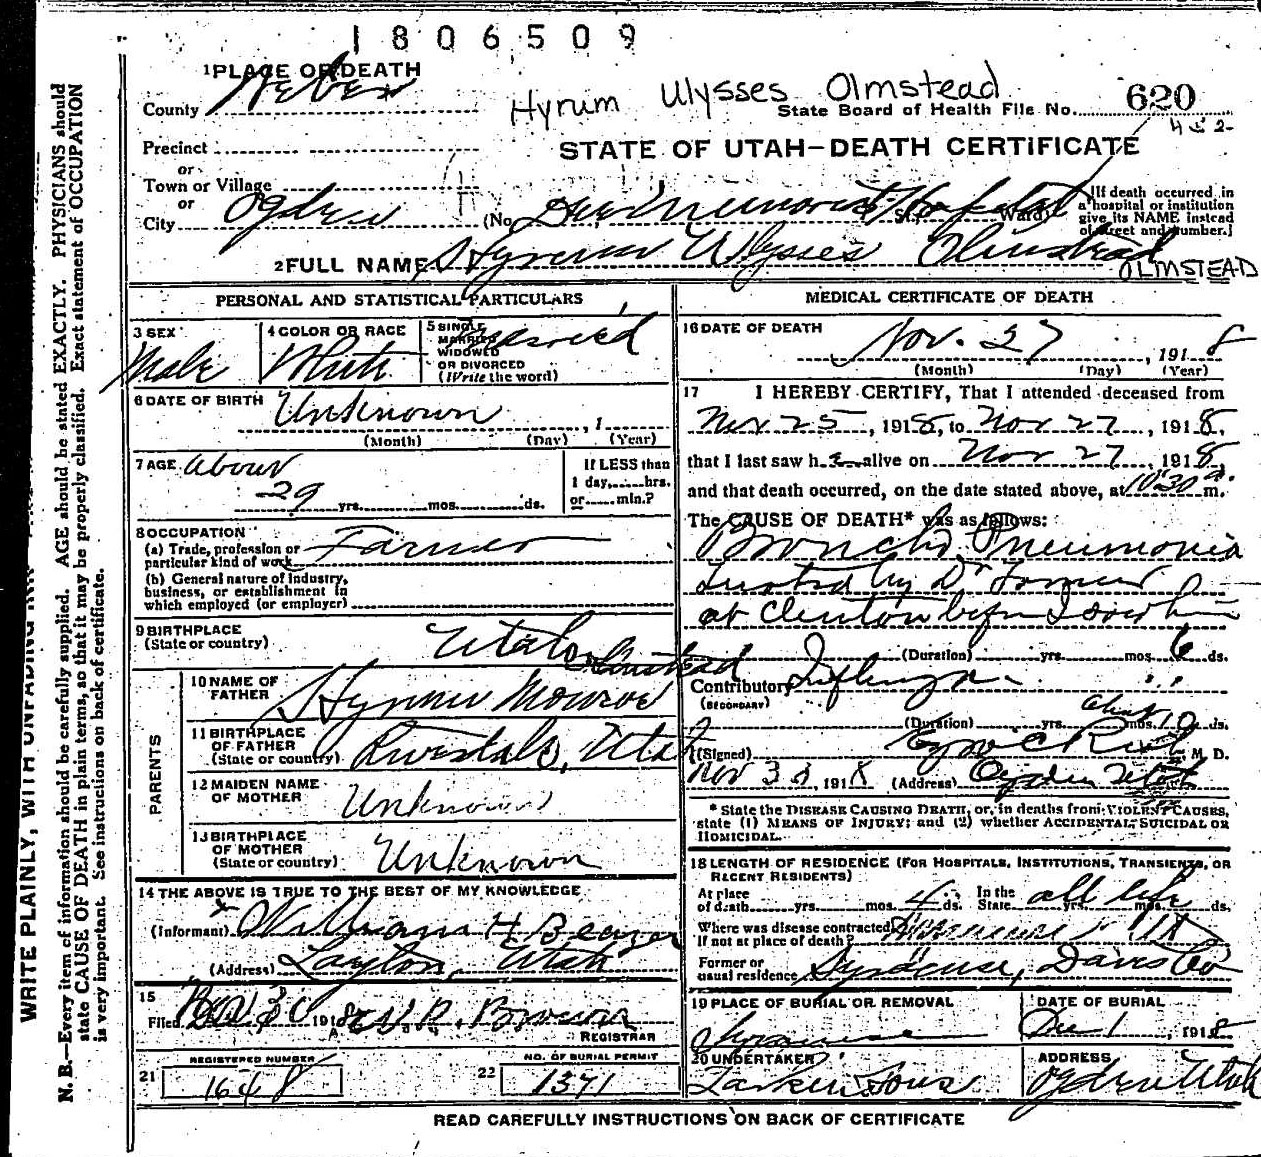 1806509
1 PLACE OF DEATH
County Weber
Hyrum Ulysses Olmstead
State Board of Health File No. 620
452-
Precinct
or
STATE OF UTAH—DEATH CERTIFICATE
Town or Village
or
City Ogden (No. Dee Hospital St., Ward)
[If death occurred in a hospital or institution give its NAME instead of street and number.]
2 FULL NAME Hyrum Ulysses Olmstead
OLMSTEAD
PERSONAL AND STATISTICAL PARTICULARS
3 SEX Male
4 COLOR OR RACE White
5 SINGLE, MARRIED, WIDOWED OR DIVORCED (Write the word) Married
6 DATE OF BIRTH Unknown, 1
(Month) (Day) (Year)
7 AGE about
29 yrs. mos. ds.
If LESS than 1 day, hrs. or min.?
8 OCCUPATION
(a) Trade, profession or particular kind of work Farmer
(b) General nature of Industry, business, or establishment in which employed (or employer)
9 BIRTHPLACE
(State or country) Utah
PARENTS
10 NAME OF FATHER Hyrum Monroe Olmstead
11 BIRTHPLACE OF FATHER (State or country) Riverdale, Utah
12 MAIDEN NAME OF MOTHER Unknown
13 BIRTHPLACE OF MOTHER (State or country) Unknown
14 THE ABOVE IS TRUE TO THE BEST OF MY KNOWLEDGE
(Informant) William H Beazer
(Address) Layton, Utah
15
Filed 30 1918 Brown
REGISTRAR
REGISTERED NUMBER
21 1648
NO. OF BURIAL PERMIT
22 1371
MEDICAL CERTIFICATE OF DEATH
16 DATE OF DEATH
Nov. 27, 1918
(Month) (Day) (Year)
17 I HEREBY CERTIFY, That I attended deceased from
Nov 25, 1918, to Nov 27, 1918,
that I last saw h alive on Nov 27, 1918,
and that death occurred, on the date stated above, at 10:30 a. m.
The CAUSE OF DEATH* was as follows:
Broncho Pneumonia
Treated by Dr
at Clinton before I saw him
(Duration) yrs. mos. 6 ds.
Contributory Influenza
(SECONDARY)
about
(Duration) yrs. mos. 10 ds.
(Signed) M. D.
Nov 30, 1918 (Address) Ogden Utah
* State the DISEASE CAUSING DEATH, or, in deaths from VIOLENT CAUSES, state (1) MEANS OF INJURY; and (2) whether ACCIDENTAL, SUICIDAL OR HOMICIDAL.
18 LENGTH OF RESIDENCE (FOR HOSPITALS, INSTITUTIONS, TRANSIENTS, OR RECENT RESIDENTS)
At place of death yrs. mos. 4 ds. In the State all life yrs. mos. ds.
Where was disease contracted If not at place of death?
Former or usual residence Syracuse, Davis Co
19 PLACE OF BURIAL OR REMOVAL
Syracuse
DATE OF BURIAL
Dec 1, 1918
20 UNDERTAKER
Larkin & Sons
ADDRESS
Ogden Utah
READ CAREFULLY INSTRUCTIONS ON BACK OF CERTIFICATE
N. B.—Every item of information should be carefully supplied. AGE should be stated EXACTLY. PHYSICIANS should
state CAUSE OF DEATH in plain terms, so that it may be properly classified. Exact statement of OCCUPATION
is very important. See instructions on back of certificate.
WRITE PLAINLY, WITH UNFADING INK